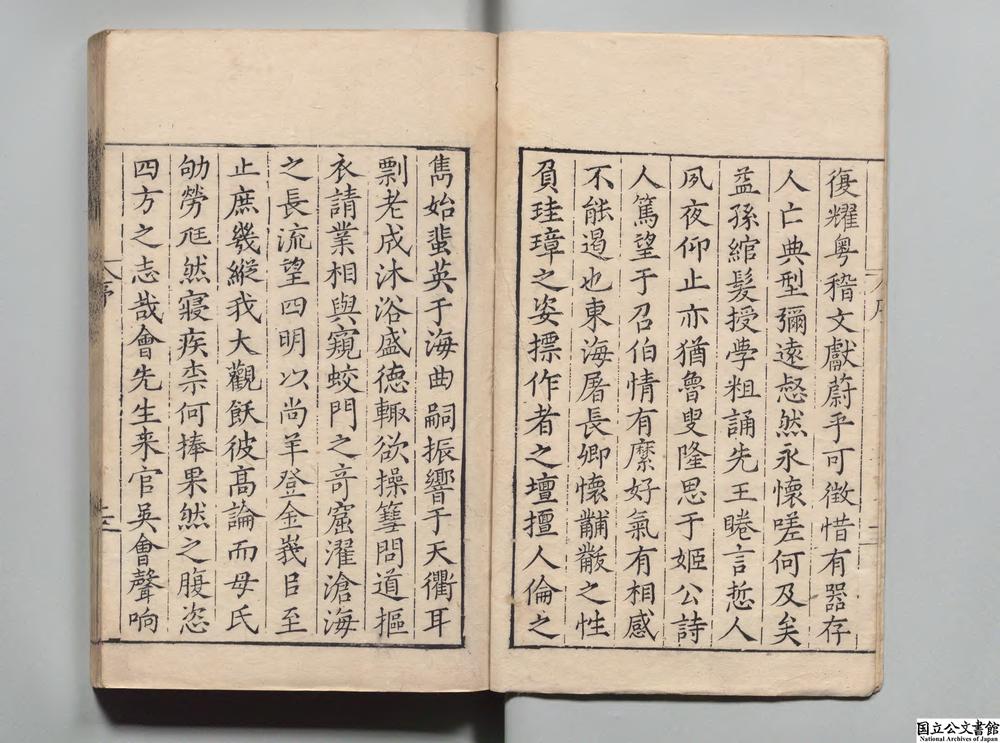 復耀粤稽文獻蔚乎可徴惜有器存
人亡典型彌遠愸然永懷嗟何及矣
益孫綰髮授學粗誦先王睠言悊人
夙夜仰止亦猶魯叟隆思于姬公詩
人篤望于召伯情有縻好氣有相感
不能遏也東海屠長卿懷黼黻之性
負珪璋之姿摽作者之壇擅人倫之
雋始蜚英于海曲嗣振響于天衢耳
剽老成沐浴盛德輙欲操篲問道摳
衣請業相與窺蛟門之竒窟濯滄海
之長流望四明以尚羊登金峩㠯至
止庶幾縱我大觀飫彼高論而母氏
劬勞尫然寢疾柰何捧果然之腹恣
四方之志哉會先生来官吳會聲响
序
三
国立公文書館
National Archives of Japan